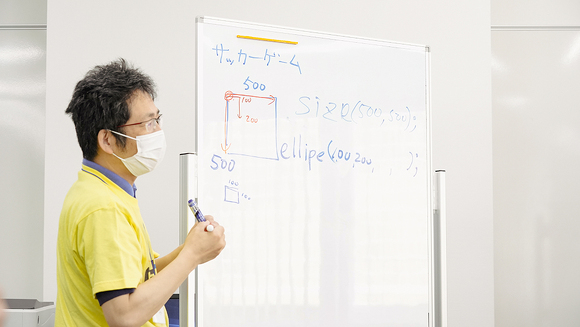 サッカーゲーム
500
100
200
size(500,500);
500
ellipe(100,200,　,　);
100
100